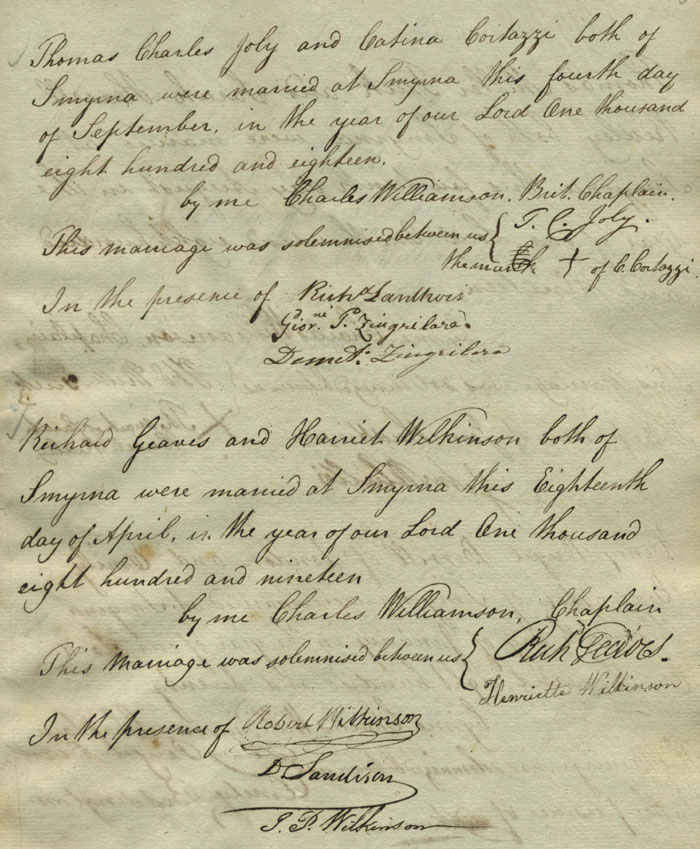 Thomas Charles Joly and Catina Cortazzi both of
Smyrna were married at Smyrna this fourth day
of September, in the year of our Lord One thousand
eight hundred and eighteen.
by me Charles Williamson. Brit. Chaplain.
This marriage was solemnised between us { T. C. Joly.
the mark + of C. Cortazzi.
In the presence of Richd
Giovni P. Zingrilara
Demet. Zingrilara
Richard Geaves and Harriet Wilkinson both of
Smyrna were married at Smyrna this Eighteenth
day of April, in the year of our Lord One thousand
eight hundred and nineteen
by me Charles Williamson, Chaplain
This marriage was solemnised between us { Richd Geaves.
Henriette Wilkinson
In the presence of Robert Wilkinson
D Sandison
J. P. Wilkinson